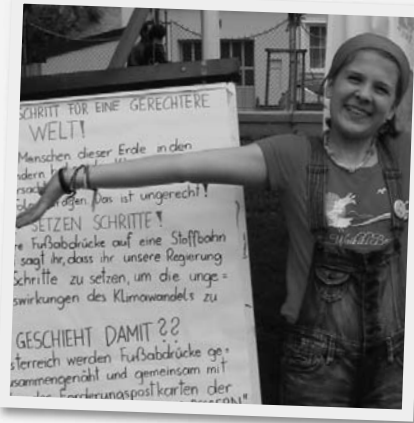 SCHRITT FÜR EINE GERECHTERE
WELT!
Menschen dieser Erde in den
tragen. Das ist ungerecht!
SETZEN SCHRITTE!
re Fußabdrücke auf eine Stoffbahn
sagt ihr, dass ihr unsere Regierung
Schritte zu setzen, um die unge=
swirkungen des Klimawandels zu
GESCHIEHT DAMIT??
sterreich werden Fußabdrücke ge=
usammengenäht und gemeinsam mit
Forderungspostkarten der